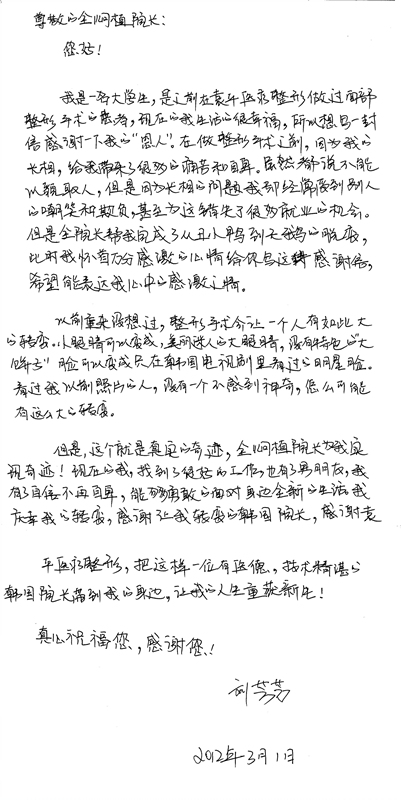 尊敬的金炯植院长：
您好！
我是一名大学生，是之前在袁平医疗整形做过面部
整形手术的患者，现在的我生活的很幸福，所以想写一封
信感谢一下我的“恩人”。在做整形手术之前，因为我的
长相，给我带来了很多的痛苦和自卑。虽然都说不能
以貌取人，但是因为长相的问题我却经常受到别人
的嘲笑和欺负，甚至为这错失了很多就业的机会。
但是金院长帮我完成了从丑小鸭到天鹅的蜕变，
此时我怀着万分感激的心情给你写这封感谢信，
希望能表达我心中的感激之情。
以前重来没想过，整形手术会让一个人有如此大
的转变。小眼睛可以变成，美丽迷人的大眼睛，没有特色的“大
饼子”脸可以变成只在韩国电视剧里看过的明星脸。
看过我以前照片的人，没有一个不感到神奇，怎么可能
有这么大的转变。
但是，这个就是真实的奇迹，金炯植院长为我实
现奇迹！现在的我，找到了很好的工作，也有了男朋友，我
有了自信不再自卑，能够勇敢的面对身边全新的生活我
庆幸我的转变，感谢让我转变的韩国院长，感谢袁
平医疗整形，把这样一位有医德，技术精湛的
韩国院长带到我的身边，让我的人生重获新生！
真心祝福您，感谢您！
刘芳芳
2012年3月1日